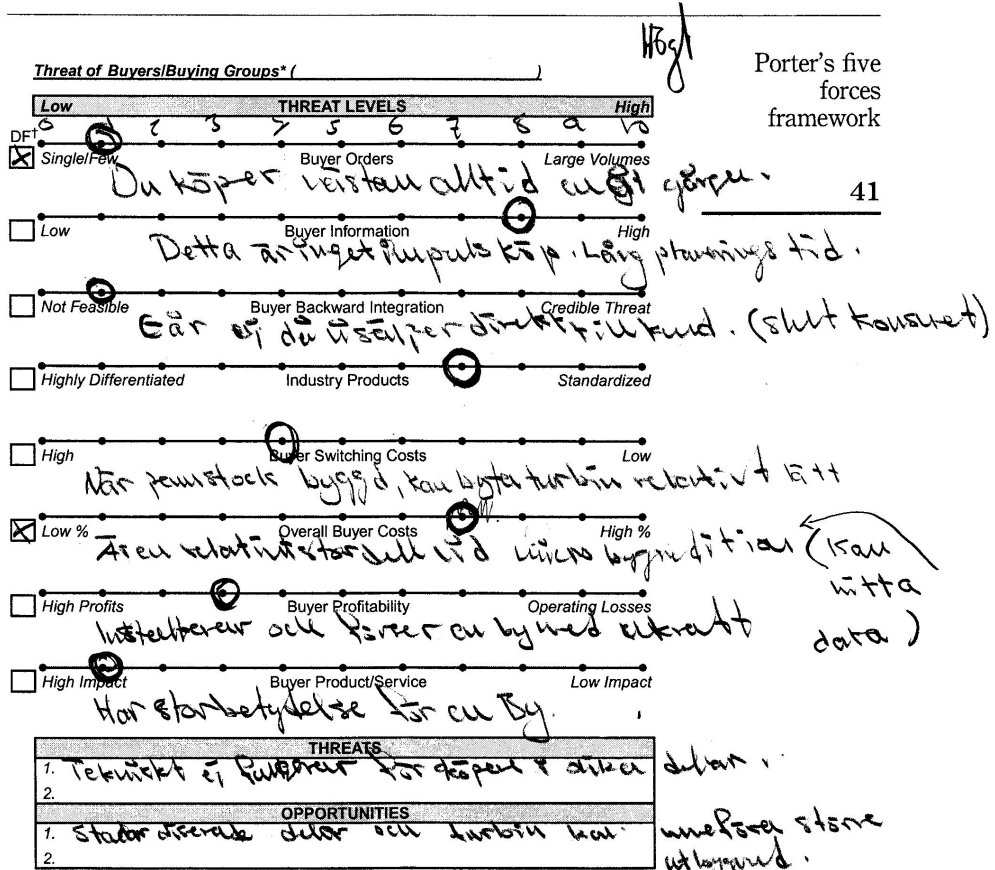 Högt
Porter's five
forces
framework
41
Threat of Buyers/Buying Groups* ( )
Low THREAT LEVELS High
0 1 2 3 4 5 6 7 8 9 10
DF†
Single/Few Buyer Orders Large Volumes
Du köper nästan alltid en åt gången.
Low Buyer Information High
Detta är inget impuls köp. Lång planerings tid.
Not Feasible Buyer Backward Integration Credible Threat
Går ej då vi säljer direkt till kund. (slut konsument)
Highly Differentiated Industry Products Standardized
High Buyer Switching Costs Low
När pennstock byggd, kan byta turbin relativt lätt
Low % Overall Buyer Costs High %
Är en relativt stor del vid micro
(kan
hitta
data)
High Profits Buyer Profitability Operating Losses
och förser en by med elkraft
High Impact Buyer Product/Service Low Impact
Har stor betydelse för en By.
THREATS
1. Tekniskt ej fungerar för köpare i olika delar.
2.
OPPORTUNITIES
1. Standardiserade delar och turbin kan innebära större
2. utbyggnad.